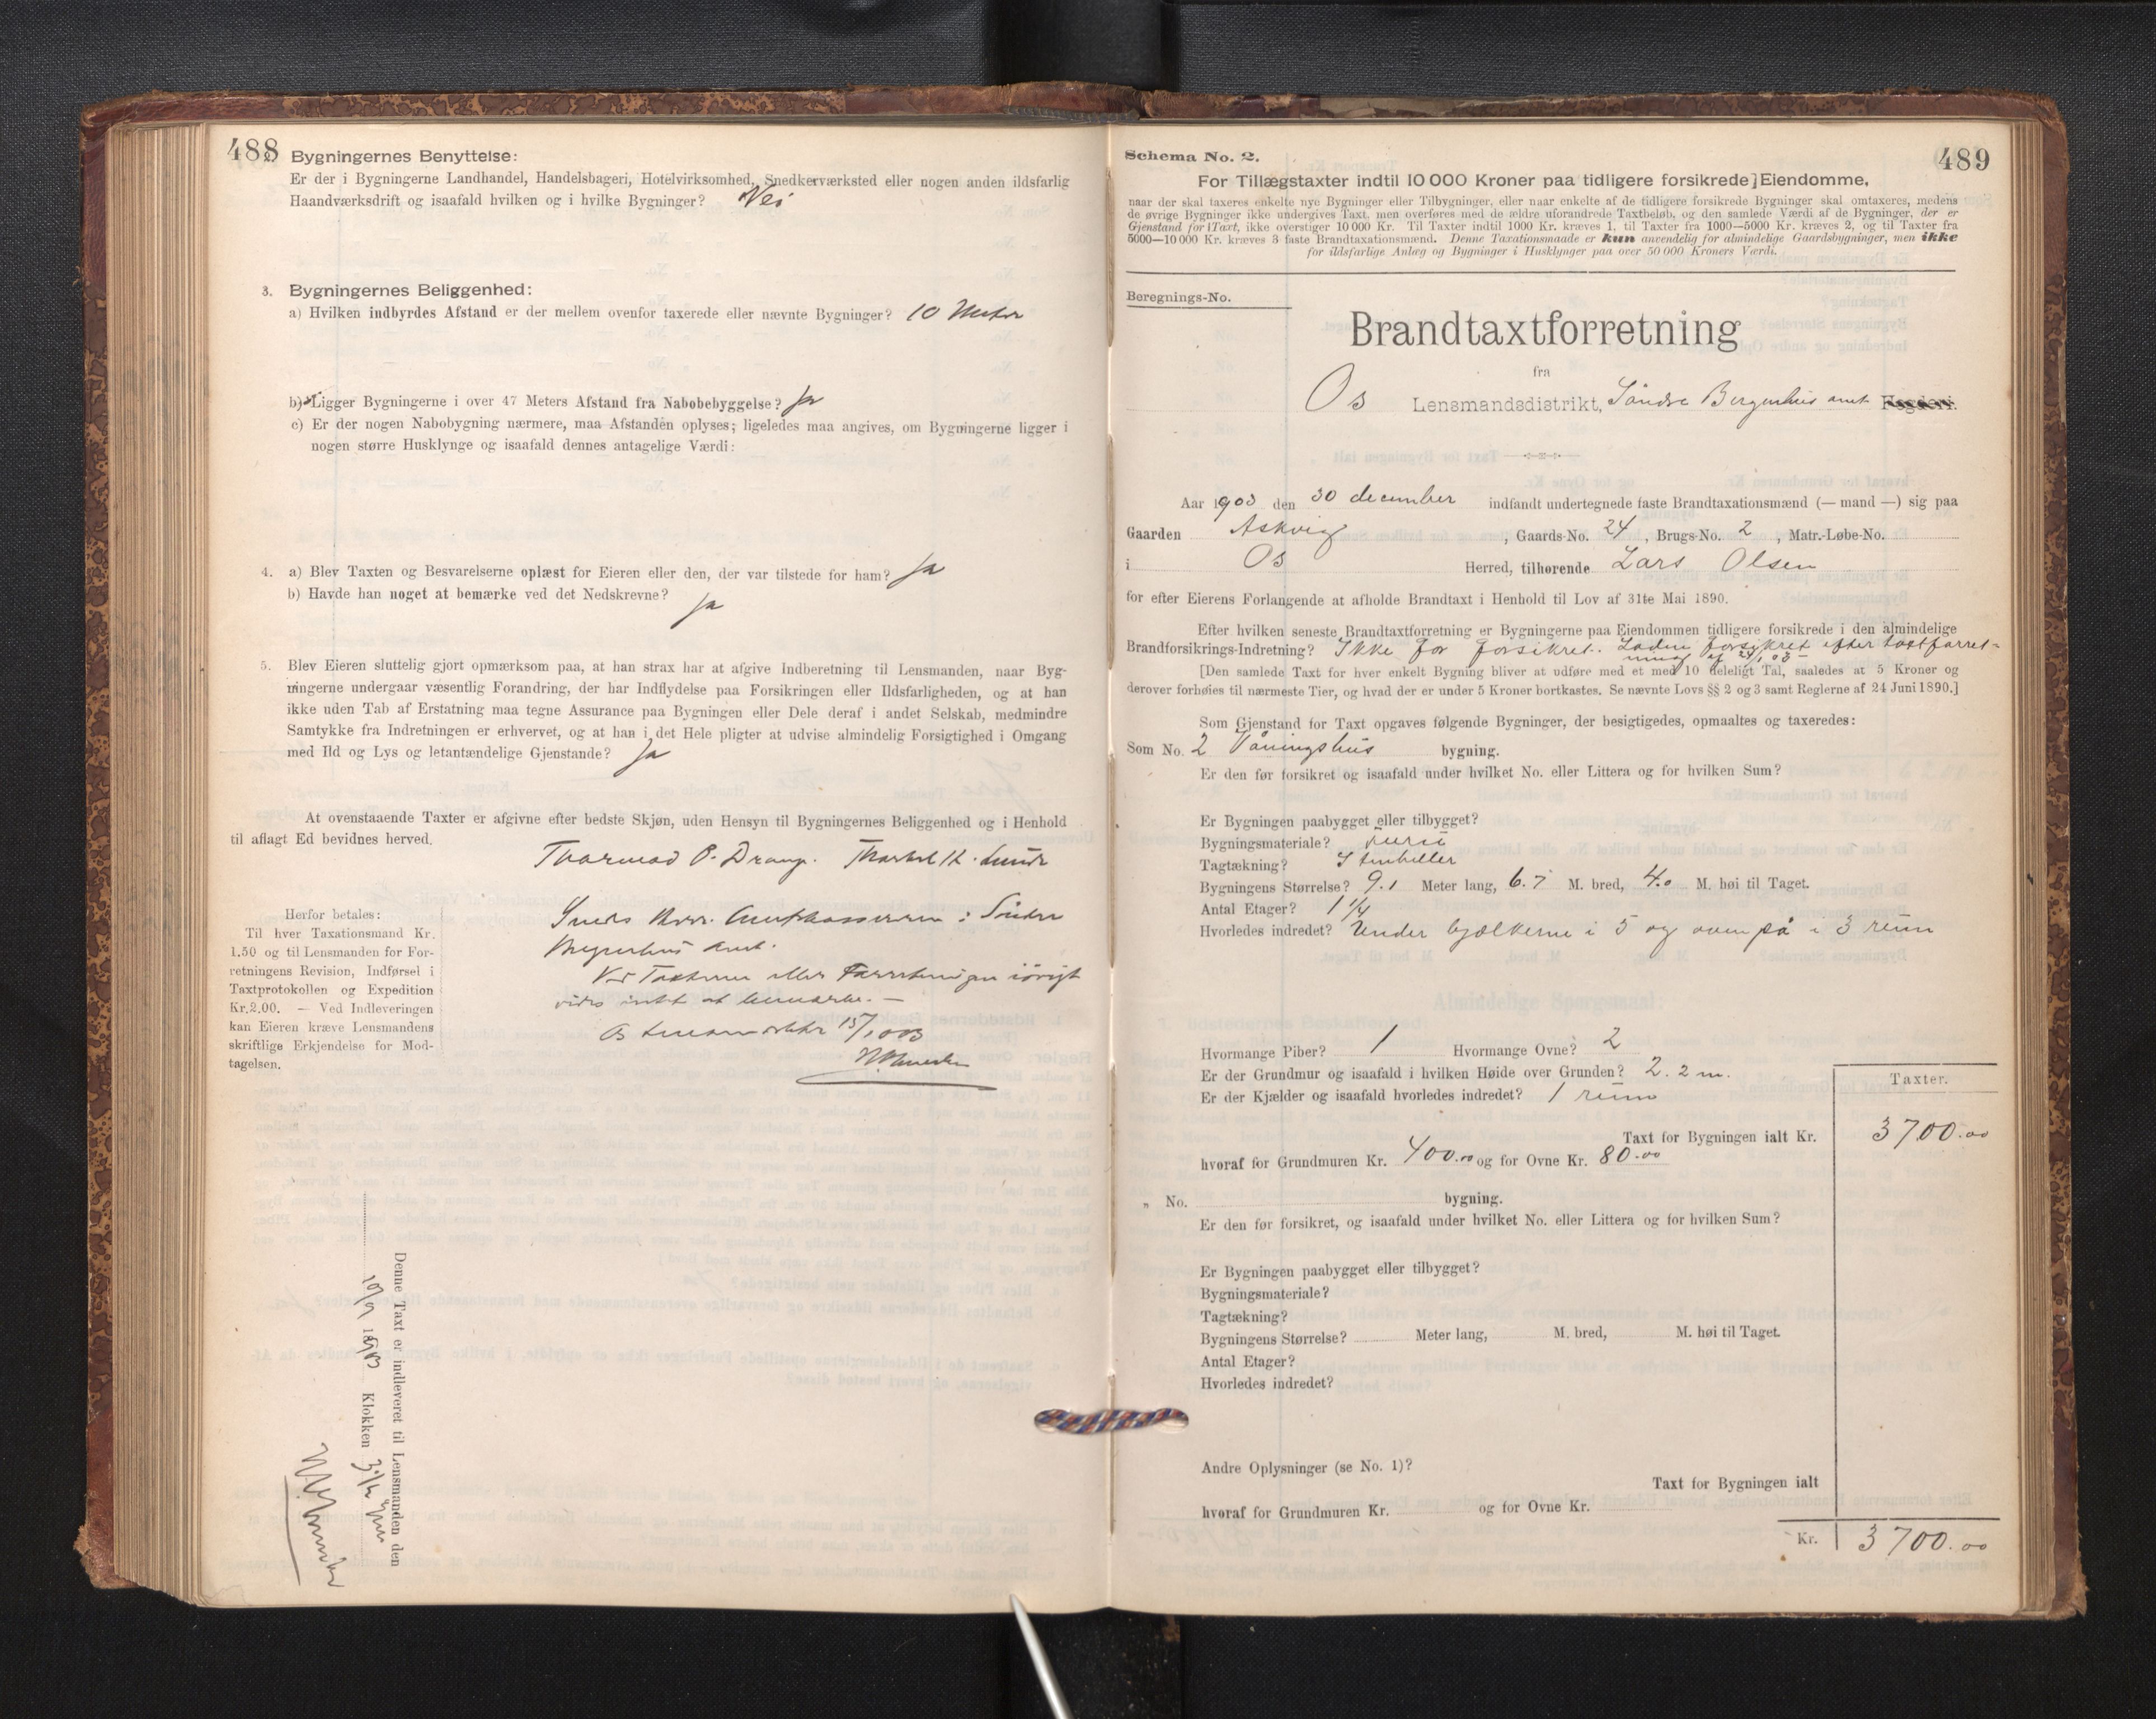 488
2. Bygningernes Benyttelse:
Er der i Bygningerne Landhandel, Handelsbageri, Hotelvirksomhed, Snedkerværksted eller nogen anden ildsfarlig
Haandværksdrift og isaafald hvilken og i hvilke Bygninger? Nei
3. Bygningernes Beliggenhed:
a) Hvilken indbyrdes Afstand er der mellem ovenfor taxerede eller nævnte Bygninger? 10 Meter
b) Ligger Bygningerne i over 47 Meters Afstand fra Nabobebyggelse? Ja
c) Er der nogen Nabobygning nærmere, maa Afstanden oplyses; ligeledes maa angives, om Bygningerne ligger i
nogen større Husklynge og isaafald dennes antagelige Værdi:
4. a) Blev Taxten og Besvarelserne oplæst for Eieren eller den, der var tilstede for ham? Ja
b) Havde han noget at bemærke ved det Nedskrevne? Ja
5. Blev Eieren sluttelig gjort opmærksom paa, at han strax har at afgive Indberetning til Lensmanden, naar Byg-
ningerne undergaar væsentlig Forandring, der har Indflydelse paa Forsikringen eller Ildsfarligheden, og at han
ikke uden Tab af Erstatning maa tegne Assurance paa Bygningen eller Dele deraf i andet Selskab, medmindre
Samtykke fra Indretningen er erhvervet, og at han i det Hele pligter at udvise almindelig Forsigtighed i Omgang
med Ild og Lys og letantændelige Gjenstande? Ja
At ovenstaaende Taxter er afgivne efter bedste Skjøn, uden Hensyn til Bygningernes Beliggenhed og i Henhold
til aflagt Ed bevidnes herved.
Thormod P. Drange. H. Lunde
Sendes Herr Amtskassereren i Søndre
Bergenhus Amt.
Ved Taxterne eller Forretningen iøvrigt
vides intet at bemærke. —
Os 15/1 903
Herfor betales:
Til hver Taxationsmand Kr.
1.50 og til Lensmanden for For-
retningens Revision, Indførsel i
Taxtprotokollen og Expedition
Kr. 2.00. — Ved Indleveringen
kan Eieren kræve Lensmandens
skriftlige Erkjendelse for Mod-
tagelsen.
Denne Taxt er indleveret til Lensmanden den
Klokken
489
Schema No. 2.
For Tillægstaxter indtil 10 000 Kroner paa tidligere forsikrede] Eiendomme,
naar der skal taxeres enkelte nye Bygninger eller Tilbygninger, eller naar enkelte af de tidligere forsikrede Bygninger skal omtaxeres, medens
de øvrige Bygninger ikke undergives Taxt, men overføres med de ældre uforandrede Taxtbeløb, og den samlede Værdi af de Bygninger, der er
Gjenstand for Taxt, ikke overstiger 10 000 Kr. Til Taxter indtil 1000 Kr. kræves 1, til Taxter fra 1000—5000 Kr. kræves 2, og til Taxter fra
5000—10 000 Kr. kræves 3 faste Brandtaxationsmænd. Denne Taxationsmaade er kun anvendelig for almindelige Gaardsbygninger, men ikke
for ildsfarlige Anlæg og Bygninger i Husklynger paa over 50 000 Kroners Værdi.
Beregnings-No.
Brandtaxtforretning
fra
Os Lensmandsdistrikt, Søndre Bergenhus amt Fogderi.
Aar 1903 den 30 december indfandt undertegnede faste Brandtaxationsmænd (— mand —) sig paa
Gaarden Askvig, Gaards-No. 24, Brugs-No. 2, Matr.-Løbe-No.
i Os Herred, tilhørende Lars Olsen
for efter Eierens Forlangende at afholde Brandtaxt i Henhold til Lov af 31te Mai 1890.
Efter hvilken seneste Brandtaxtforretning er Bygningerne paa Eiendommen tidligere forsikrede i den almindelige
Brandforsikrings-Indretning? Ikke før forsikret. Laden forsikret efter taxtforret-
ning af
[Den samlede Taxt for hver enkelt Bygning bliver at udføre med et med 10 deleligt Tal, saaledes at 5 Kroner og
derover forhøies til nærmeste Tier, og hvad der er under 5 Kroner bortkastes. Se nævnte Lovs §§ 2 og 3 samt Reglerne af 24 Juni 1890.]
Som Gjenstand for Taxt opgaves følgende Bygninger, der besigtigedes, opmaaltes og taxeredes:
Som No. 2 Våningshus bygning.
Er den før forsikret og isaafald under hvilket No. eller Littera og for hvilken Sum?
Er Bygningen paabygget eller tilbygget?
Bygningsmateriale? Furu
Tagtækning? Stenheller
Bygningens Størrelse? 9.1 Meter lang, 6.7 M. bred, 4.0 M. høi til Taget.
Antal Etager? 1 1/4
Hvorledes indredet? Under bjælkerne i 5 og ovenpå i 3 rum
Hvormange Piber? 1 Hvormange Ovne? 2
Er der Grundmur og isaafald i hvilken Høide over Grunden? 2.2 m.
Er der Kjælder og isaafald hvorledes indredet? 1 rum
Taxter.
Taxt for Bygningen ialt Kr. 3700.00
hvoraf for Grundmuren Kr. 400.00 og for Ovne Kr. 80.00
„ No. bygning.
Er den før forsikret, og isaafald under hvilket No. eller Littera og for hvilken Sum?
Er Bygningen paabygget eller tilbygget?
Bygningsmateriale?
Tagtækning?
Bygningens Størrelse? Meter lang, M. bred, M. høi til Taget.
Antal Etager?
Hvorledes indredet?
Andre Oplysninger (se No. 1)?
Taxt for Bygningen ialt
hvoraf for Grundmuren Kr. og for Ovne Kr.
Kr. 3700.00